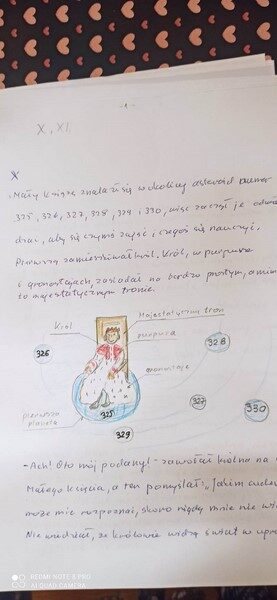 -1-
X, XI,
X
Mały książę znalazł się w okolicy asteroid numer
325, 326, 327, 328, 329 i 330, więc zaczął je odwie-
dzać, aby się czymś zająć i czegoś się nauczyć.
Pierwszą zamieszkiwał król. Król, w purpurze
i gronostajach, zasiadał na bardzo prostym, a mimo
to majestatycznym tronie.
Majestatyczny tron
Król
purpura
328
326
gronostaje
327
pierwsza
planeta
325
330
329
- Ach! Oto mój poddany! - zawołał król na
Małego księcia, a ten pomyślał: "Jakim
może mnie rozpoznać, skoro nigdy mnie nie
Nie wiedział, że królowie widzą świat w
REDMI NOTE 8 PRO
AI QUAD CAMERA